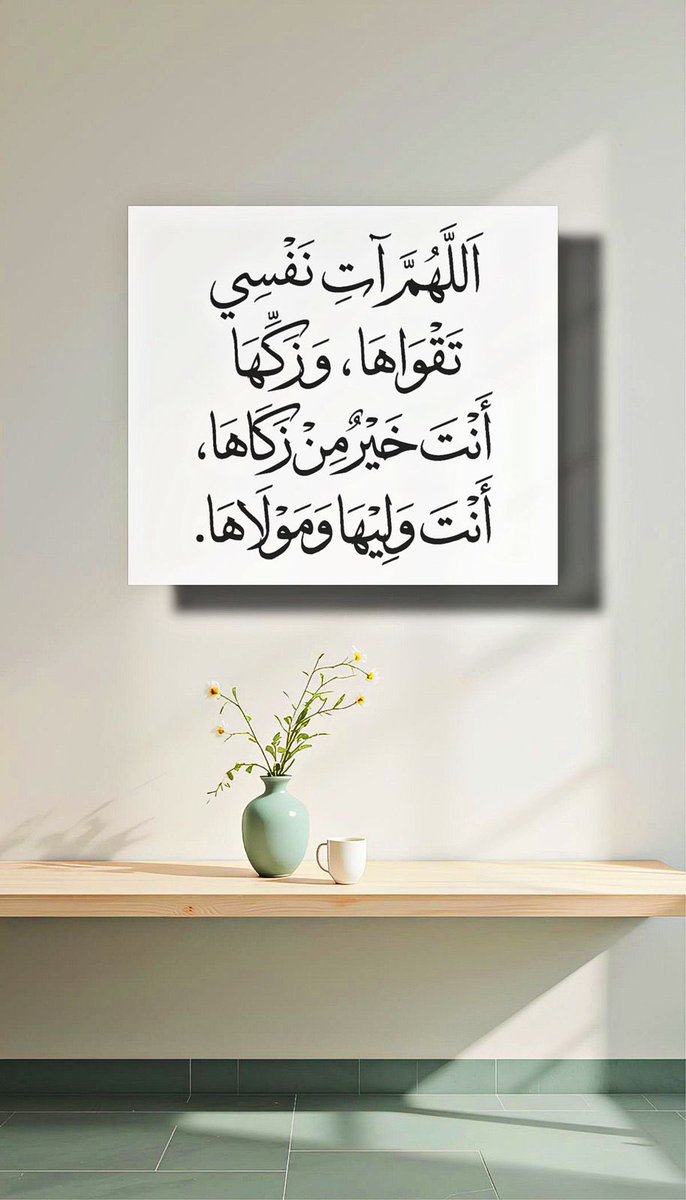 اَللَّهُمَّ آتِ نَفْسِي
تَقْوَاهَا، وَزَكِّهَا
أَنْتَ خَيْرٌ مِنْ زَكَاهَا،
أَنْتَ وَلِيْهَا وَمَوْلَاهَا.